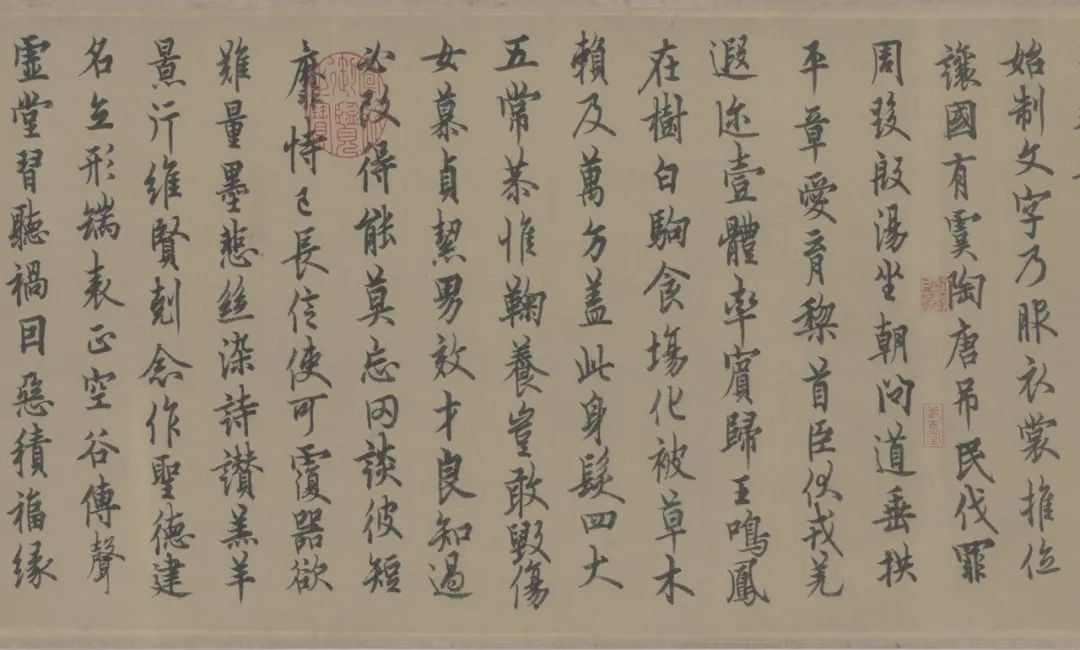 始制文字乃服衣裳推位
讓國有虞陶唐吊民伐罪
周發殷湯坐朝問道垂拱
平章愛育黎首臣伏戎羌
遐迩壹體率賓歸王鳴鳳
在樹白駒食場化被草木
賴及萬方盖此身髮四大
五常恭惟鞠養豈敢毀傷
女慕貞絜男效才良知過
必改得能莫忘罔談彼短
靡恃己長信使可覆器欲
難量墨悲絲染詩讚羔羊
景行維賢剋念作聖德建
名立形端表正空谷傳聲
虛堂習聽禍因惡積福緣